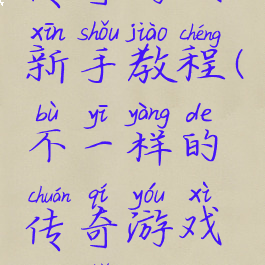 xīn shǒu jiào chéng
新手教程(
bù yī yàng de
不一样的
chuán qí yóu xì
传奇游戏